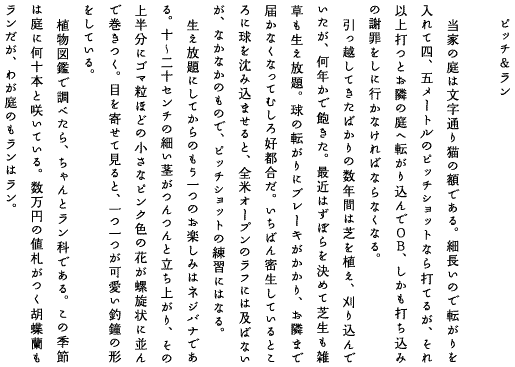 ピッチ&ラン
　当家の庭は文字通り猫の額である。細長いので転がりを
入れて四、五メートルのピッチショットなら打てるが、それ
以上打つとお隣の庭へ転がり込んでOB、しかも打ち込み
の謝罪をしに行かなければならなくなる。
　引っ越してきたばかりの数年間は芝を植え、刈り込んで
いたが、何年かで飽きた。最近はずぼらを決めて芝生も雑
草も生え放題。球の転がりにブレーキがかかり、お隣まで
届かなくなってむしろ好都合だ。いちばん密生しているとこ
ろに球を沈み込ませると、全米オープンのラフには及ばない
が、なかなかのもので、ピッチショットの練習にはなる。
　生え放題にしてからのもう一つのお楽しみはネジバナであ
る。十〜二十センチの細い茎がつんつんと立ち上がり、その
上半分にゴマ粒ほどの小さなピンク色の花が螺旋状に並ん
で巻きつく。目を寄せて見ると、一つ一つが可愛い釣鐘の形
をしている。
　植物図鑑で調べたら、ちゃんとラン科である。この季節
は庭に何十本と咲いている。数万円の値札がつく胡蝶蘭も
ランだが、わが庭のもランはラン。